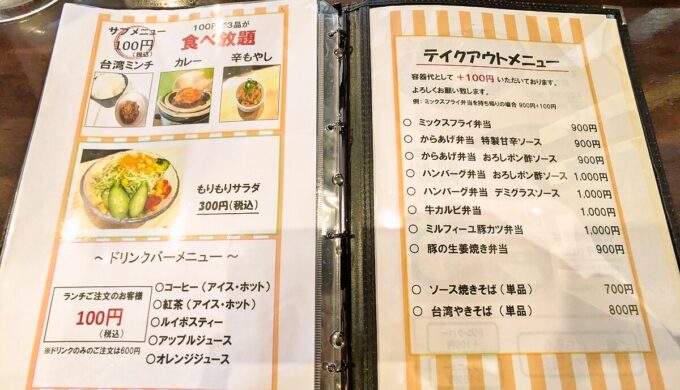 サブメニュー
100円
(税込)
100円で3品が
食べ放題
台湾ミンチ カレー 辛もやし
もりもりサラダ
300円(税込)
～ ドリンクバーメニュー ～
ランチご注文のお客様
100円
(税込)
※ドリンクのみのご注文は600円
○コーヒー (アイス・ホット)
○紅茶 (アイス・ホット)
○ルイボスティー
○アップルジュース
○オレンジジュース
テイクアウトメニュー
容器代として +100円 いただいております。
よろしくお願い致します。
例:ミックスフライ弁当を持ち帰りの場合 900円+100円
○ ミックスフライ弁当 900円
○ からあげ弁当 特製甘辛ソース 900円
○ からあげ弁当 おろしポン酢ソース 900円
○ ハンバーグ弁当 おろしポン酢ソース 1,000円
○ ハンバーグ弁当 デミグラスソース 1,000円
○ 牛カルビ弁当 1,000円
○ ミルフィーユ豚カツ弁当 1,000円
○ 豚の生姜焼き弁当 900円
○ ソース焼きそば (単品) 700円
○ 台湾やきそば (単品) 800円